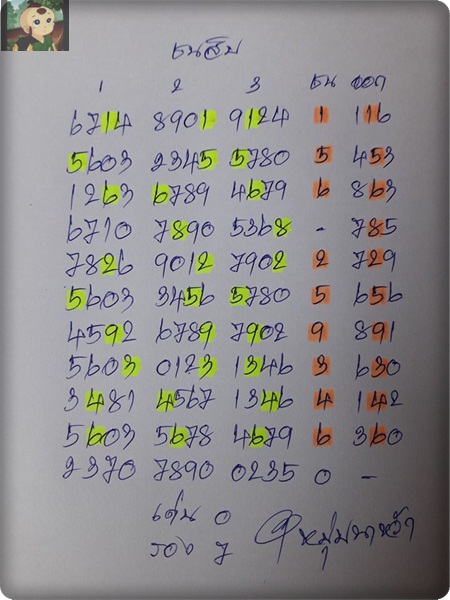 ชนสิบ
1 2 3 ชน ออก
6714 8901 9124 1 116
5603 2345 5780 5 453
1263 6789 4679 6 863
6710 7890 5368 - 785
7826 9012 7902 2 729
5603 3456 5780 5 656
4592 6789 7902 9 891
5603 0123 1346 3 630
3481 4567 1346 4 142
5603 5678 4679 6 360
2370 7890 0235 0 -
เด่น 0
รอง 7